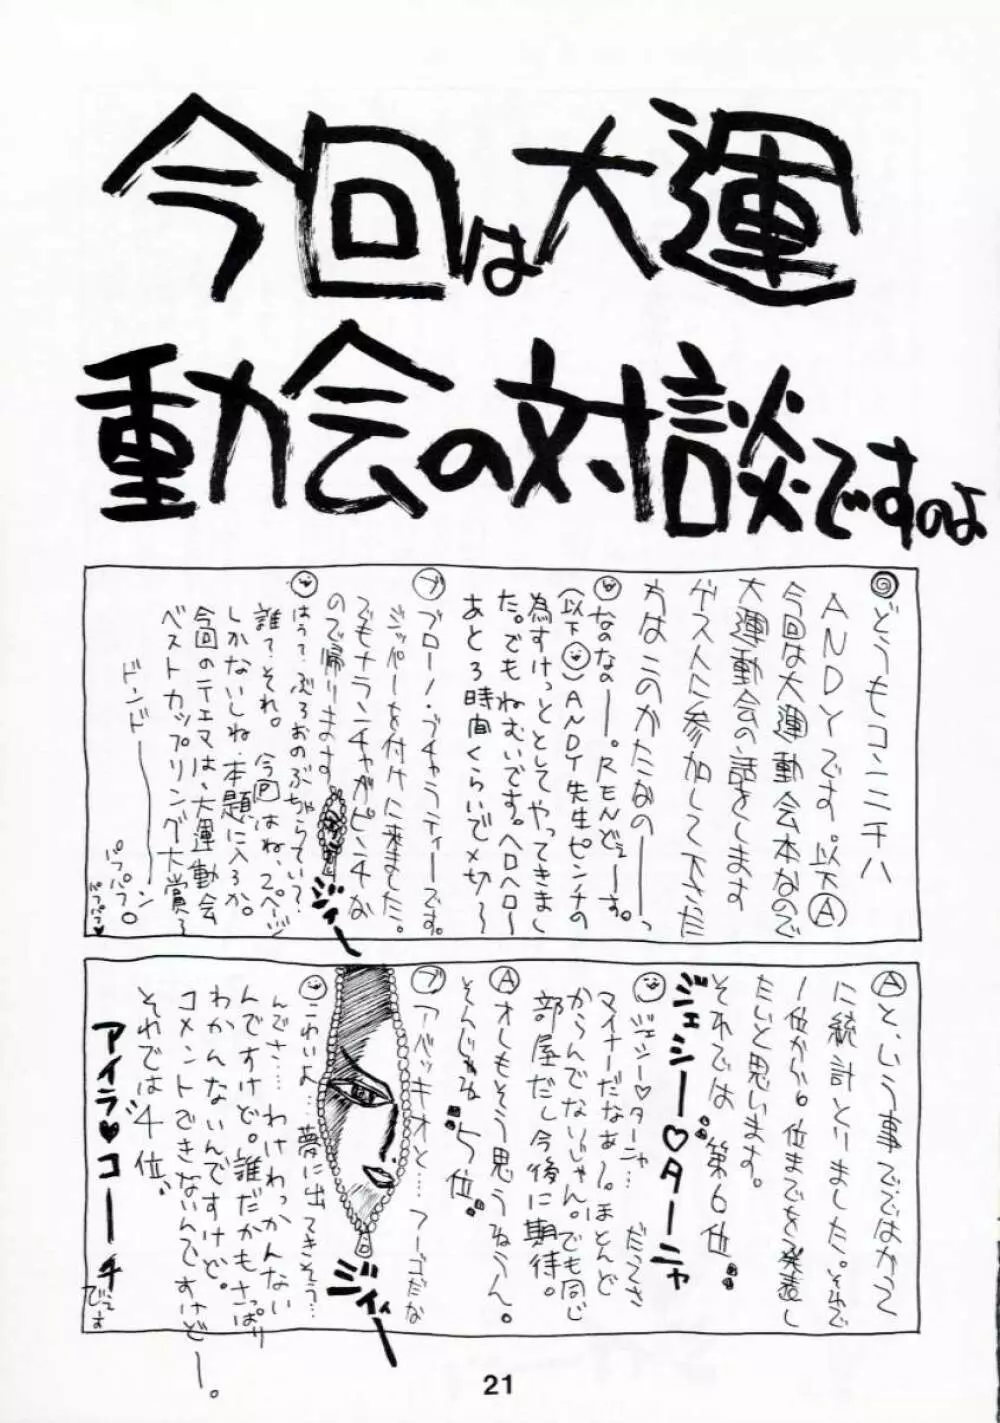 今回は大運
動会の対談ですのよ
◎どうもコンニチハ
ANDYです。以下Ⓐ
今回は大運動会本なので
大運動会の話をします
ゲストに参加して下さた
方はこのかたなのーーっ
なのなのー。RENどぇーす。
(以下 )ANDY先生ピンチの
為すけっととしてやってきまし
た。でもねむいです。ヘロヘロ〜
あと3時間くらいで〆切〜
ブ ブローノ・ブチャラティーです。
ジッパーを付けに来ました。
でもナランチャがピンチな
ので帰ります
ジィー
はぅて・ぶろおのぶちゃらてい?
誰て・それ。今回はね、2ページ
しかないしね・本題に入るか。
今回のテェマは、大運動会
ベストカップリング大賞〜
ドンドーーーン
パフパフ。
パフパフ♥
Ⓐと、いう事でではかって
に統計とりました。それで
1位から6位までを発表し
たいと思います。
それでは〝第6位〟
ジェシー♡ターニャ
ジェシー♡ターニャ… だってさ
マイナーだなぁー。ほとんど
からんでないじゃん。でも同じ
部屋だし今後に期待。
Ⓐオレもそう思うねうん。
そんじゃね〝5位〟
ブ アバッキオと…フーゴだな
ジィィー
こわいよ…夢に出てきそう…
んでさ……わけわっかんない
んですけど。誰だかもさっぱり
わかんないんですけど。
コメントできないんですけどー。
それでは〝4位〟
アイラ♥コーチ
でーす
21